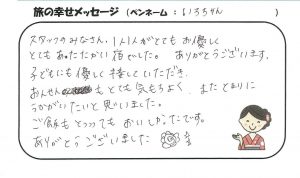 旅の幸せメッセージ (ペンネーム : いろちゃん )
スタッフのみなさん、1人1人がとてもお優しく
とてもあったかい宿でした。ありがとうございます。
子どもにも優しく接していただき、
おんせんもとても気もちよく、またとまりに
うかがいたいと思いました。
ご飯もとっても おいしかったです。
ありがとうございました